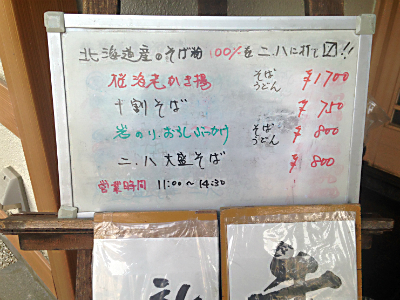 北海道産のそば粉100%を二.八に打て〼!!
桜海老かき揚 そば うどん ¥1700
十割そば ¥750
岩のり.おろしぶっかけ そば うどん ¥800
二.八大盛そば ¥800
営業時間 11:00〜14:30